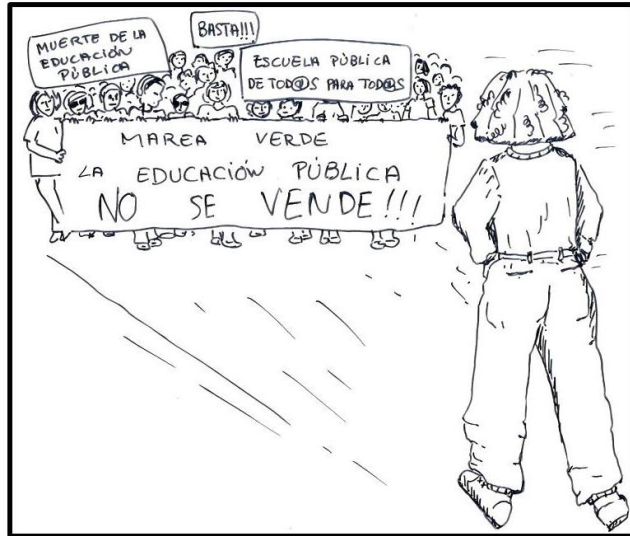 MUERTE DE LA
EDUCACIÓN
PÚBLICA
BASTA!!!
ESCUELA PÚBLICA
DE TOD@S PARA TOD@S
MAREA VERDE
LA EDUCACIÓN PÚBLICA
NO SE VENDE!!!